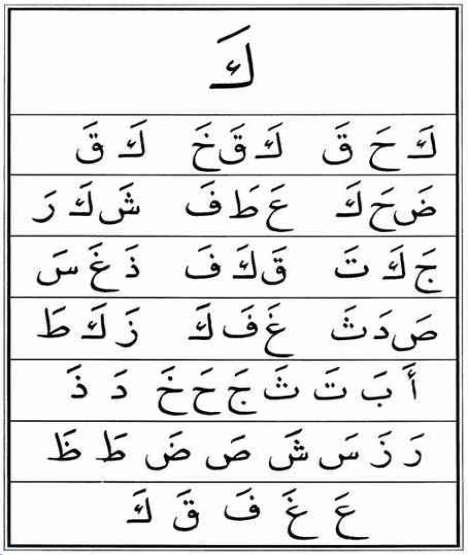 كَ
كَ حَ قَ كَ قَ خَ كَ قَ
ضَ حَ كَ عَ طَ فَ شَ كَ رَ
جَ كَ تَ قَ كَ فَ ذَ غَ سَ
صَ دَ ثَ غَ فَ كَ زَ كَ طَ
أَ بَ تَ ثَ جَ حَ خَ دَ ذَ
رَ زَ سَ شَ صَ ضَ طَ ظَ
عَ غَ فَ قَ كَ